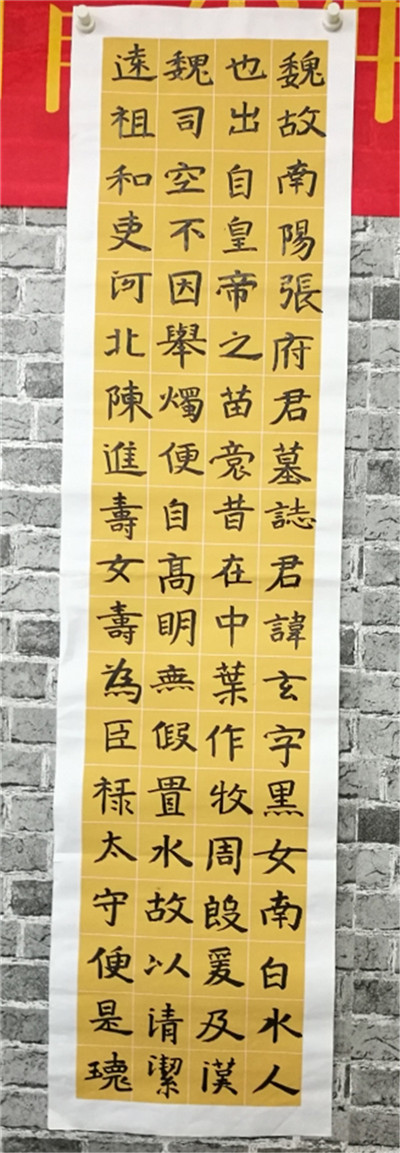 魏故南陽張府君墓誌君諱玄字黑女南白水人
也出自皇帝之苗裔昔在中葉作牧周殷爰及漢
魏司空不因舉燭便自髙明無假置水故以清潔
遠祖和吏河北陳進壽女壽為臣禄太守便是瓌